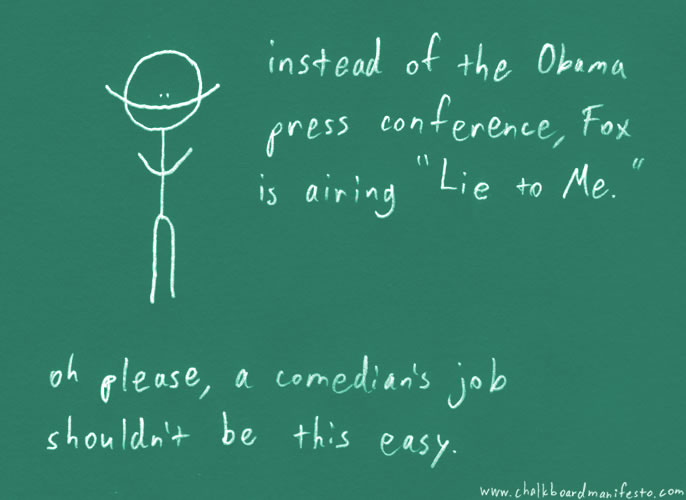 instead of the Obama
press conference, Fox
is airing "Lie to Me."
oh please, a comedian's job
shouldn't be this easy.
www.chalkboardmanifesto.com